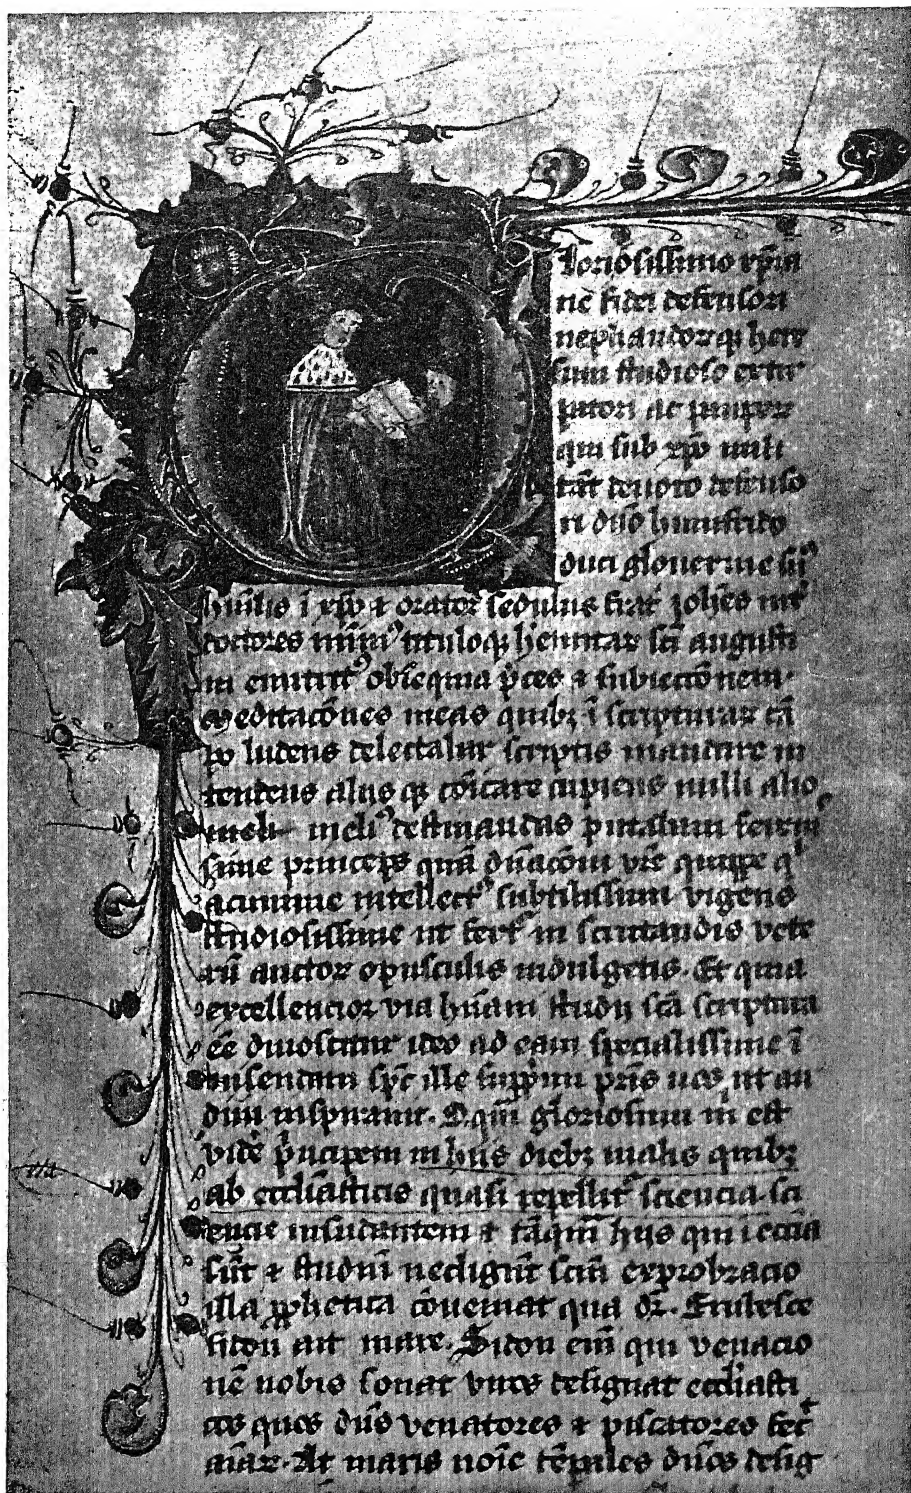 loriosissimo xp̄ia
nē fidei defensori
nephandorqȝ here
sium studioso extir
patori ac pauper
qui sub xp̄o mili
tāt devoto defenso
ri dūo humfrido
duci glouernie suꝰ
hūilis ī xp̄o ⁊ orator sedulus frat̄ Johēs int̄
doctores mīmꝰ tituloqȝ hemitar sc̄i augusti
ni obsequia p̄ces ⁊ subiectōnem·
Meditacōnes meas quibȝ ī scripturar cā
po ludens delectabar scriptis mandare in
tendens aliis qȝ cōicare cupiens nulli alio
meliꝰ destinandas putabam
sime princeps quā dn̄acōni vr̄e quippe qͥ
acumine intellectꝰ subtilissimi vigens
studiosissime ut fert̄ in scrutandis vete
rū auctor opusculis indulgetis· Et quia
excellencior via hūani studii sc̄a scriptura
eē dinoscitur ideo ad eam specialissime ī
uisendam sp̄c ille supp̄mi pr̄is uos ut au
diui inspirauit· O qm̄ gloriosum m̄ est
videre p̄ncipem in hiis diebȝ malis quibȝ
ab eccl̄iasticis quasi repellit̄ sciencia· sci
encie insudantem ⁊ tāqm̄ hijs qui ī eccl̄ia
sūt ⁊ studiū necligūt sciē exprobracio
illa ꝓphetica cōueniat qua dr̄· Erubesce
sidon ait mare· Sidon em̄ qui venacio
nē nobis sonat viros designat eccl̄iasti
cos quos dūs venatores ⁊ piscatores
At maris noīe tēp̄ales dūos desig